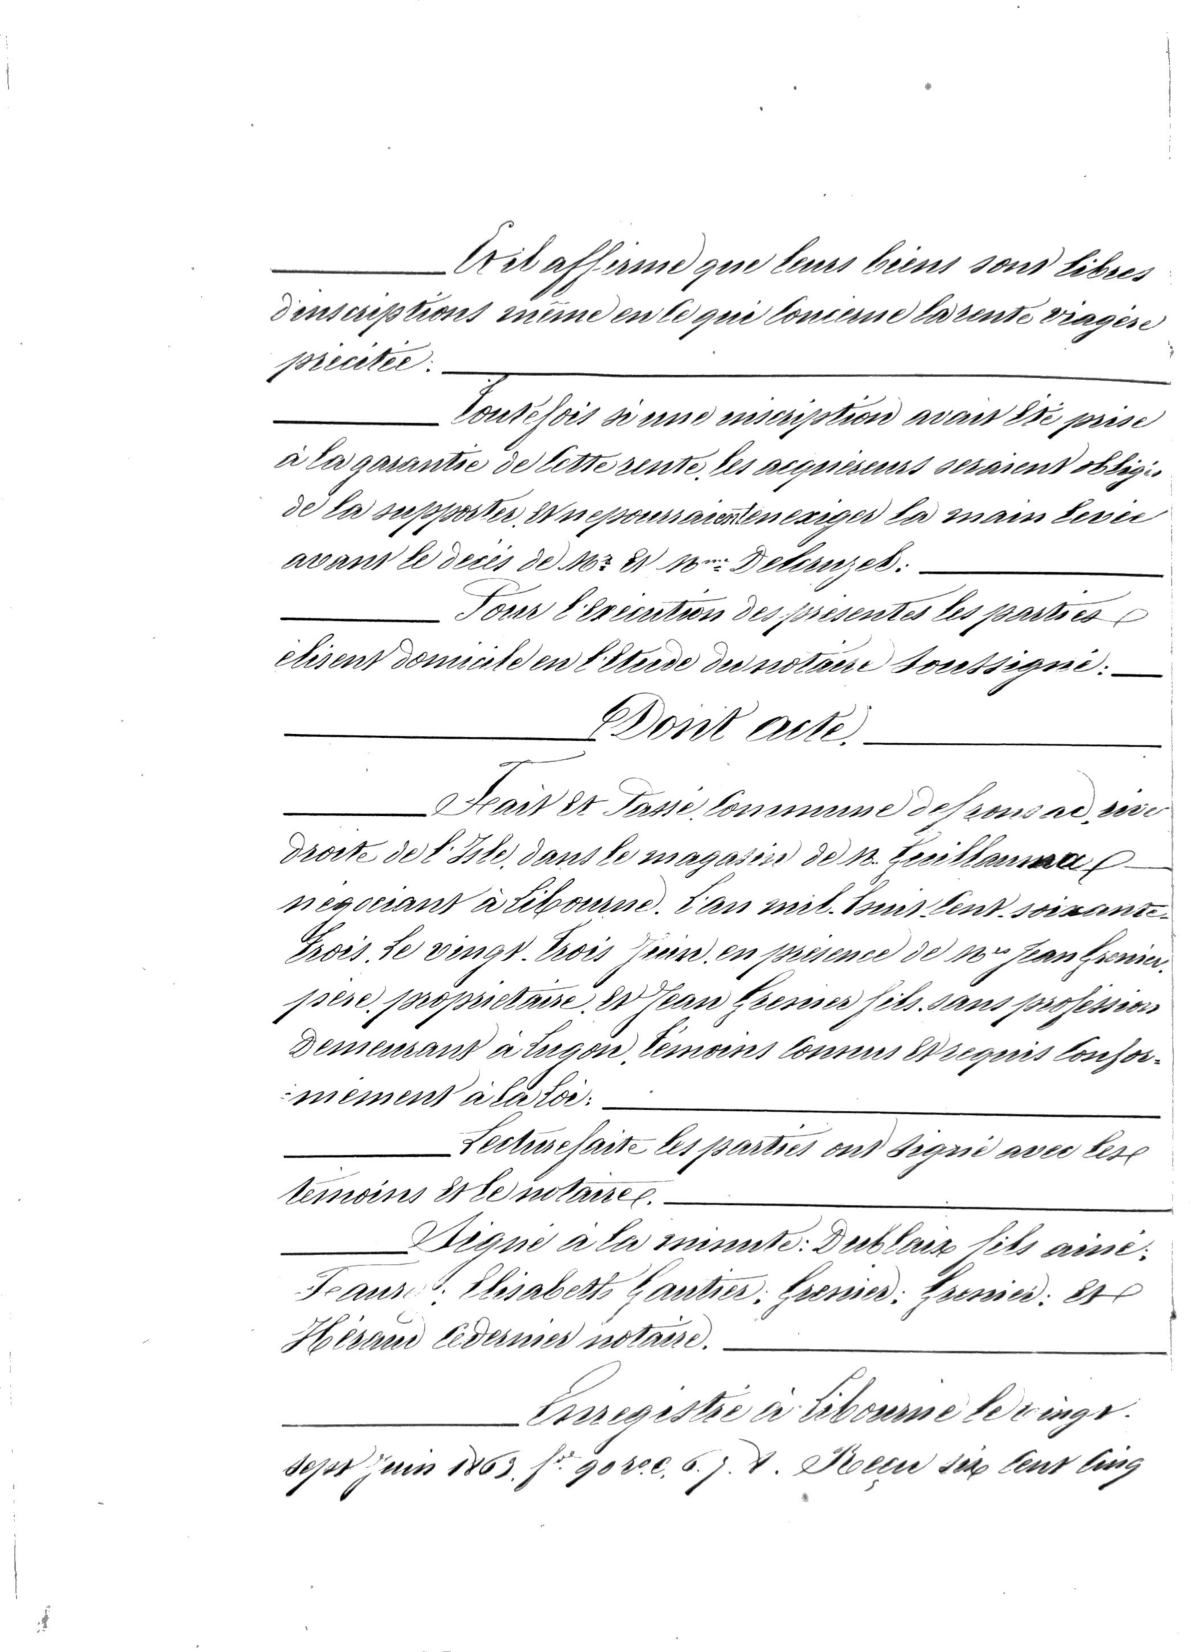 Et il affirme que leurs biens sont libres
d'inscriptions même en ce qui concerne la rente viagère
précitée.
Toutefois si une inscription avait été prise
à la garantie de cette rente, les acquéreurs seraient obligés
de la supporter, et ne pourraient en exiger la main levée
avant le décès de Mr et Mme Delcruzel.
Pour l'exécution des présentes les parties
élisent domicile en l'étude du notaire soussigné.
Dont acte.
Fait et Passé, Commune de Fronsac, rive
droite de l'Isle, dans le magasin de M. Guillaume
négociant à Libourne. L'an mil-huit-cent-soixante-
trois, le vingt-trois Juin, en présence de Mrs Jean Grenier,
père, propriétaire, et Jean Grenier fils, sans profession
Demeurant à Lugon, témoins connus et requis confor-
mément à la loi.
Lecture faite les parties ont signé avec les
témoins et le notaire.
Signé à la minute: Dublaix fils ainé;
Elisabeth Gautier; Grenier; Grenier; et
Héraud ce dernier notaire.
Enregistré à Libourne le vingt-
sept Juin 1863. fo 90 vo c. 6. 7. Reçu six cent cinq